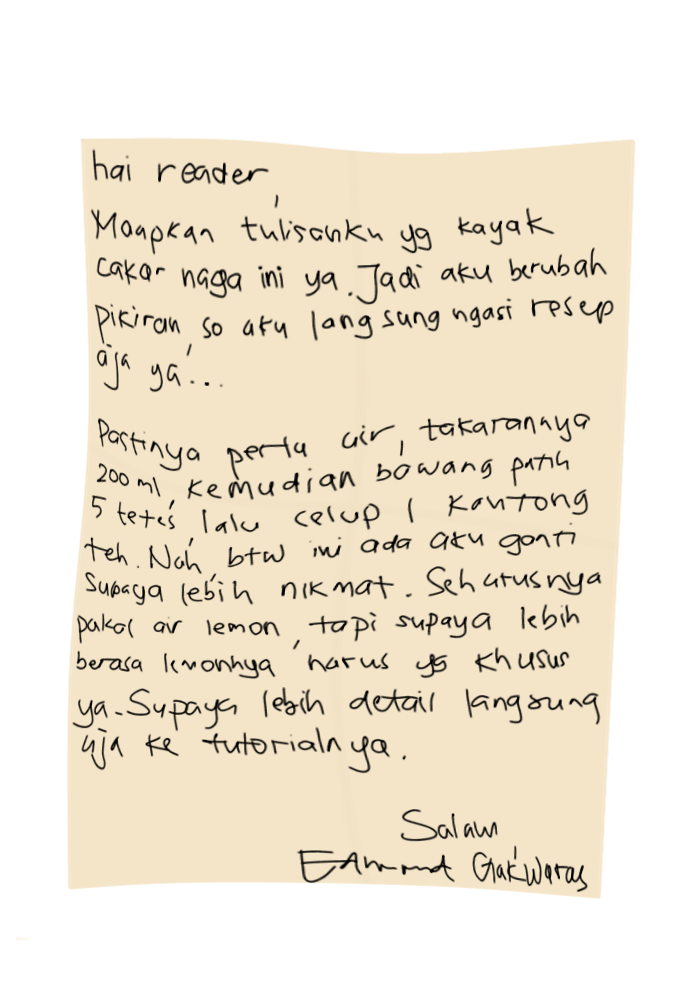 hai reader,
Moapkan tulisanku yg kayak
cakar naga ini ya. Jadi aku berubah
pikiran, so aku langsung ngasi resep
aja ya...
Pastinya perlu air, takarannya
200 ml, kemudian bawang putih
5 tetes, lalu celup 1 kantong
teh. Nah, btw ini ada aku ganti
supaya lebih nikmat. Seharusnya
pakai air lemon, tapi supaya lebih
berasa lemonnya harus yg khusus
ya. Supaya lebih detail langsung
aja ke tutorialnya.
Salam
Gak Waras